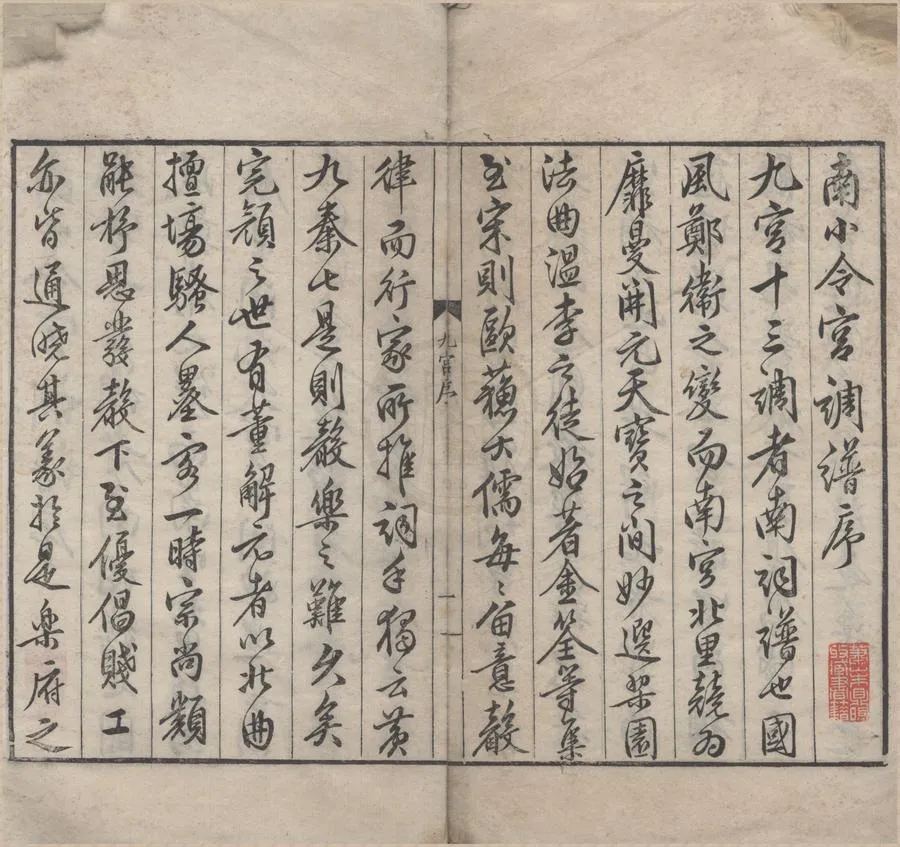 南小令宮調譜序
九宮十三調者南詞譜也國
風鄭衛之變而南宮北里競为
靡曼開元天寶之间妙選梨園
法曲溫李之徒始著金筌等集
至宋則歐蘇大儒每〻留意聲
律而行家所推詞手獨云黃
九秦七是則聲樂之難久矣
完顏之世有董解元者以北曲
擅場騷人墨客一時宗尚類
能抒思發聲下至優倡賤工
亦皆通曉其義於是樂府之
九宮序
一